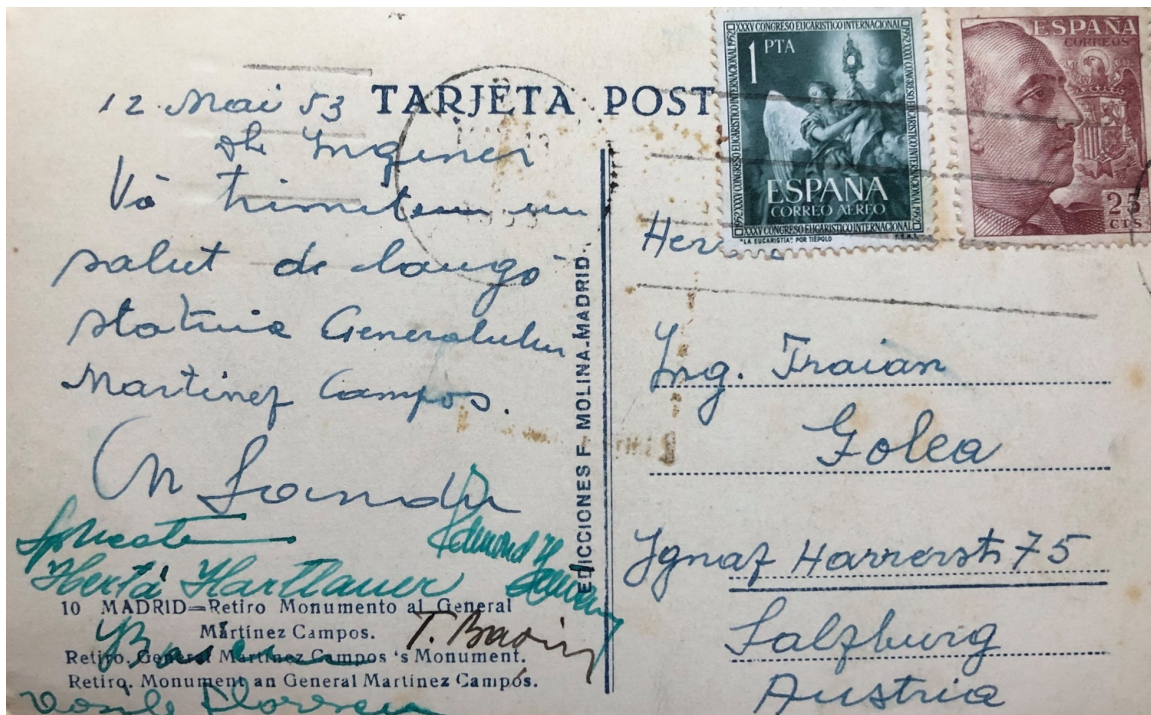 TARJETA POST
12 Mai 53
Dle Inginer
Vă trimitem un
salut de langă
statuia Generalului
Martinez Campos.
Sandu
Herta Hartlauer
T. Bavin
Vasile Florescu
10 MADRID=Retiro Monumento al General
Martínez Campos.
Retiro. General Martínez Campos 's Monument.
Retiro. Monument an General Martínez Campos.
EDICCIONES F. MOLINA.-MADRID.
XXXV CONGRESO EUCARISTICO INTERNACIONAL 1952
1 PTA
ESPAÑA
CORREO AEREO
XXXV CONGRESO EUCARISTICO INTERNACIONAL
"LA EUCARISTIA", POR TIEPOLO
ESPAÑA
CORREOS
25
CTS
Ing. Traian
Golea
Ignaz Harrerstr 75
Salzburg
Austria